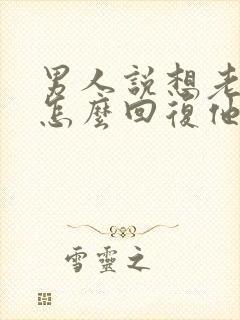 男人說想老
怎麼回復他
雪靈之